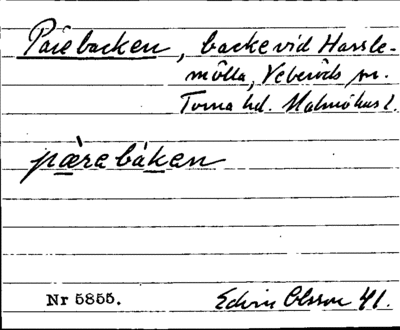 Pärebacken, backe vid Hassle-
mölla, Veberöds sn.
Torna hd. Malmöhus l.
pæ̀rebàken
Nr 5855.
Edvin Olsson 41.